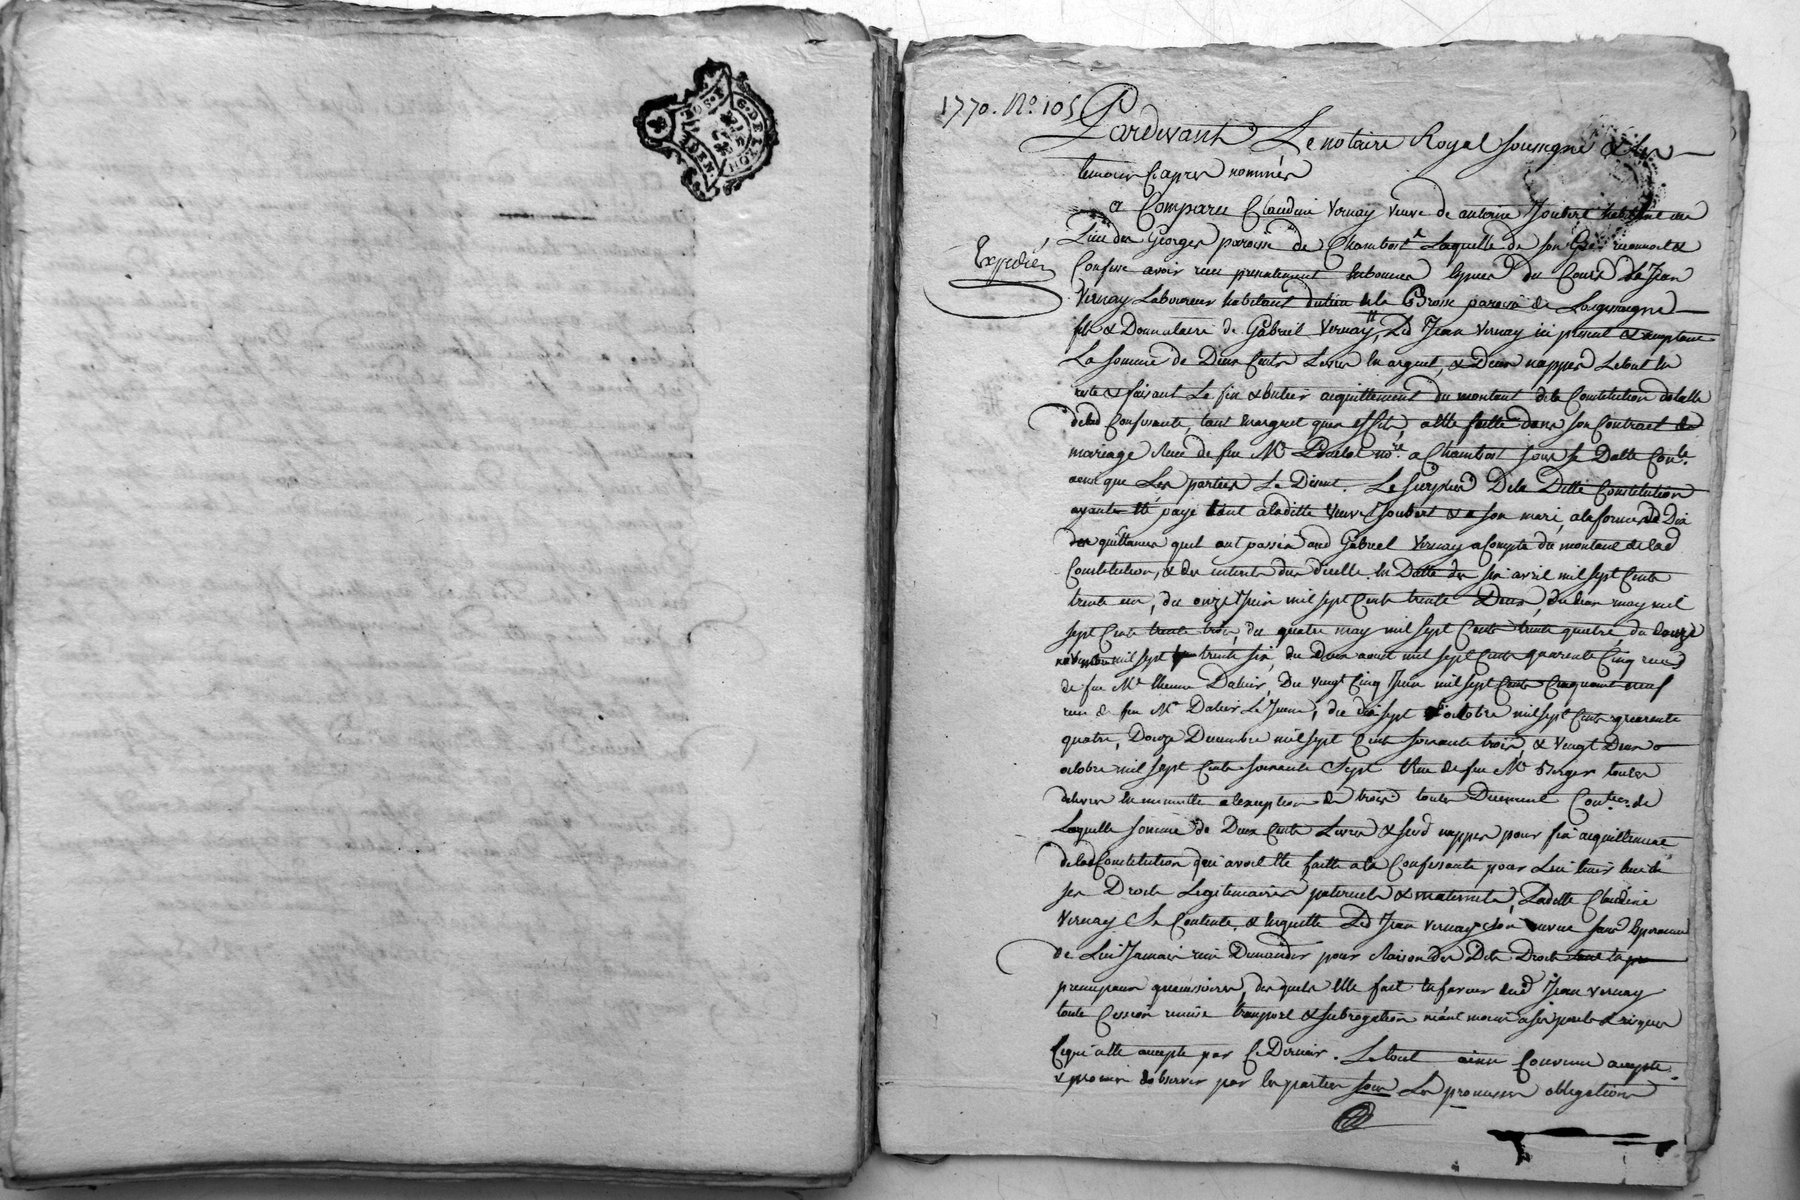 1770. No. 105
Pardevant Le notaire Royal soussigné & les
temoins cy apres nommés
a Comparu Claudine Vernay veuve de antoine Joubert habitant au
Lieu des Georges paroisse de Chambost Laquelle de son gré reconnoit &
Expediée
Confesse avoir reçu presentement en bonnes especes du Cours de Jean
Vernay Laboureur habitant du lieu de la Brosse paroisse de Longessaigne
fils & Donnataire de Gabriel Vernay, Led Jean Vernay ici present & acceptant
La somme de Deux Cents Livres en argent, & Deux nappes Le tout en
reste & faisant Le fin & entier acquittement du montant de la Constitution dotalle
de lad Confessante, tant en argent qu'en effets, a elle faitte dans son Contract de
mariage Reçu de feu Me notre a Chambost sous sa Datte Conle.
ainsi que Les parties Le Disent. Le surplus De la Ditte Constitution
ayant eté payé tant a laditte Veuve Joubert & a son mari, a la forme de Dix
des quittances quil ont passés aud Gabriel Vernay a Compte du montant de lad
Constitution, & des interets dus dicelle en Datte des six avril mil sept Cents
trente un, du onze Juin mil sept Cents trente Deux, du deux may mil
sept Cents trente trois, du quatre may mil sept Cents trente quatre, du douze
novembre mil sept trente six, du Deux aout mil sept Cents quarente Cinq reçues
de feu Me Etienne Dalier, Du vingt Cinq Juin mil sept Cents Cinquante neuf
reçu de feu Me Dalier Le Jeune, du dix sept octobre mil sept Cents quarente
quatre, Douze Decembre mil sept Cents soixante trois, & vingt Deux
octobre mil sept Cents soixante Sept Reçue de feu Me Berger toutes
delivrées en minutte a lexception de trois toutes Duement Contées. de
Laquelle somme de Deux Cents Livres & susd nappes pour fin acquittement
de lad Constitution qui avoit eté faitte a la Confessante pour Lui tenir lieu de
ses Droits Legitimaires paternels & maternels, Laditte Claudine
Vernay Se Contente, & en quitte Led Jean Vernay son neveu sans Esperance
de Lui Jamais rien Demander pour Raison des Dits Droits tant en
principaux quaccessoires, desquels Elle fait en faveur dud Jean Vernay
toute Cession remise transport & subrogation neant moins a ses perils & risques
Ce qui a eté accepté par Ce Dernier. Le tout ainsi Convenu accepté
& promis dobserver par les parties sous Les promesses obligations